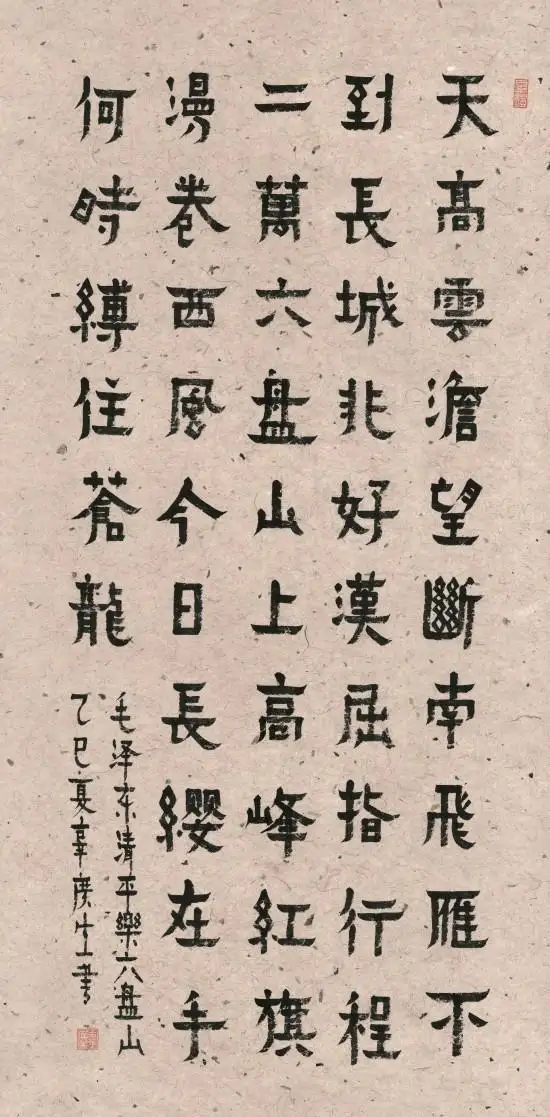 天高雲澹望斷南飛雁不
到長城非好漢屈指行程
二萬六盘山上高峰紅旗
漫卷西風今日長纓在手
何時縛住蒼龍
毛泽东清平樂六盘山
乙巳夏辛生書